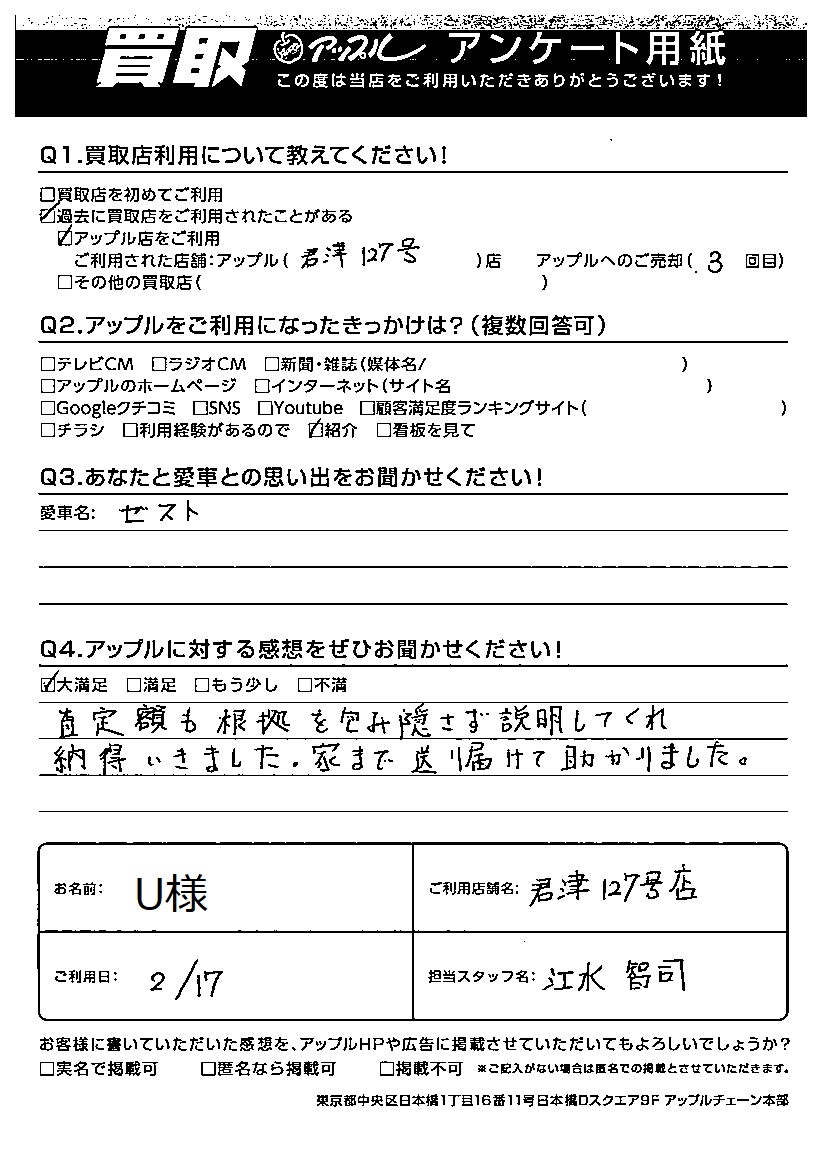 買取 アップル アンケート用紙
この度は当店をご利用いただきありがとうございます!
Q1.買取店利用について教えてください!
□買取店を初めてご利用
☑過去に買取店をご利用されたことがある
☑アップル店をご利用
ご利用された店舗:アップル( 君津127号 )店 アップルへのご売却( 3 回目)
□その他の買取店( )
Q2.アップルをご利用になったきっかけは?(複数回答可)
□テレビCM □ラジオCM □新聞・雑誌(媒体名/ )
□アップルのホームページ □インターネット(サイト名 )
□Googleクチコミ □SNS □Youtube □顧客満足度ランキングサイト( )
□チラシ □利用経験があるので ☑紹介 □看板を見て
Q3.あなたと愛車との思い出をお聞かせください!
愛車名: ゼスト
Q4.アップルに対する感想をぜひお聞かせください!
☑大満足 □満足 □もう少し □不満
査定額も根拠を包み隠さず説明してくれ
納得いきました。家まで送り届けて助かりました。
お名前: U様 ご利用店舗名: 君津127号店
ご利用日: 2/17 担当スタッフ名: 江水 智司
お客様に書いていただいた感想を、アップルHPや広告に掲載させていただいてもよろしいでしょうか?
□実名で掲載可 □匿名なら掲載可 □掲載不可 ※ご記入がない場合は匿名での掲載とさせていただきます。
東京都中央区日本橋1丁目16番11号日本橋Dスクエア9F アップルチェーン本部